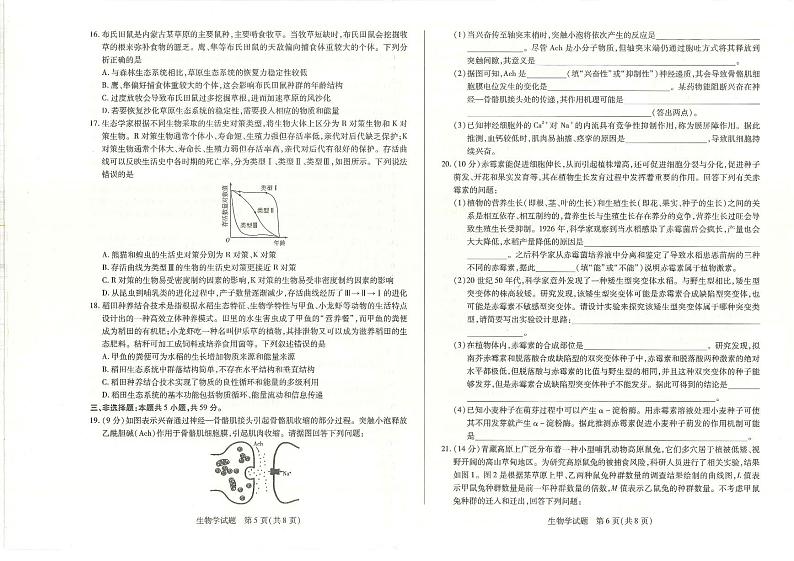 16. 布氏田鼠是内蒙古某草原的主要鼠种,主要啃食牧草。当牧草短缺时,布氏田鼠会挖掘牧
草的根来弥补食物的匮乏。鹰、隼等布氏田鼠的天敌偏向捕食体重较大的个体。下列分
析正确的是
A. 与森林生态系统相比,草原生态系统的恢复力稳定性较低
B. 鹰、隼偏好捕食体重较大的个体,这会影响布氏田鼠种群的年龄结构
C. 过度放牧会导致布氏田鼠过多挖掘草根,进而加速草原的风沙化
D. 若要恢复沙化草原生态系统的稳定性,需要投入相应的物质和能量
17. 生态学家根据不同生物采取的生活史对策类型,将生物大体上区分为 R 对策生物和 K 对
策生物。R 对策生物通常个体小、寿命短、生殖力强但存活率低,亲代对后代缺乏保护;K
对策生物通常个体大、寿命长、生殖力弱但存活率高,亲代对后代有很好的保护。存活曲
线可以反映生活史中各时期的死亡率,分为类型Ⅰ、类型Ⅱ、类型Ⅲ,如图所示。下列说法
错误的是
存活数量对数值
类型Ⅰ
类型Ⅱ
类型Ⅲ
0
年龄
A. 熊猫和蝗虫的生活史对策分别为 R 对策、K 对策
B. 存活曲线为类型Ⅰ的生物的生活史对策更接近 R 对策
C. R 对策的生物易受密度制约因素的影响,K 对策的生物易受非密度制约因素的影响
D. 从昆虫到哺乳类的进化过程中,产子数量逐渐减少,存活曲线经历了Ⅲ→Ⅱ→Ⅰ的进化
18. 稻田种养结合技术是指根据水稻生态特征、生物学特性与甲鱼、小龙虾等动物的生活特点
设计出的一种高效立体种养模式。田里的水生害虫成了甲鱼的“营养餐”,而甲鱼的粪便
成为稻田的有机肥;小龙虾吃一种名叫伊乐草的植物,其排泄物又可以成为滋养稻田的生
态肥料。秸秆可加工成饲料或培养食用菌等。下列叙述错误的是
A. 甲鱼的粪便可为水稻的生长增加物质来源和能量来源
B. 稻田生态系统中群落结构简单,不存在水平结构和垂直结构
C. 稻田种养结合技术实现了物质的良性循环和能量的多级利用
D. 稻田生态系统的基本功能包括物质循环、能量流动和信息传递
三、非选择题:本题共 5 小题,共 59 分。
19. (9 分) 如图表示兴奋通过神经—骨骼肌接头引起骨骼肌收缩的部分过程。突触小泡释放
乙酰胆碱(Ach)作用于骨骼肌细胞膜,引起肌肉收缩。请据图回答下列问题:
Ach
Na⁺
生物学试题 第 5 页(共 8 页)
(1) 当兴奋传至轴突末梢时,突触小泡将依次产生的反应是
。尽管 Ach 是小分子物质,但轴突末端仍通过胞吐方式将其释放到
突触间隙,其意义是 。
(2) 据图可知,Ach 是 (填“兴奋性”或“抑制性”)神经递质,其会导致骨骼肌细
胞膜电位发生的变化是 。某药物能阻断兴奋在神
经—骨骼肌接头处的传递,其作用机理可能是
(答出两点)。
(3) 已知神经细胞外的 Ca²⁺ 对 Na⁺ 的内流具有竞争性抑制作用,称为膜屏障作用。据此
推测,血钙较低时,肌肉易抽搐、痉挛的原因是 ,导致肌肉持
续兴奋。
20. (10 分) 赤霉素能促进细胞伸长,从而引起植株增高,还可促进细胞分裂与分化,促进种子
萌发、开花和果实发育等,其在植物生长发育过程中发挥着重要的作用。回答下列有关赤
霉素的问题:
(1) 植物的营养生长(即根、茎、叶的生长)和生殖生长(即花、果实、种子的生长)之间的关
系是相互依存、相互制约的,营养生长与生殖生长存在养分的竞争,营养生长过旺会导
致生殖生长受抑制。1926 年,科学家观察到当水稻感染了赤霉菌后会疯长,产量也会
大大降低,水稻产量降低的原因是
。之后科学家从赤霉菌培养液中分离和鉴定了导致水稻患恶苗病的三种
不同的赤霉素,据此 (填“能”或“不能”)说明赤霉素属于植物激素。
(2) 20 世纪 50 年代,科学家意外发现了一种矮生型突变体水稻。与野生型相比,矮生型
突变体的株高较矮。研究发现,该矮生型突变体可能是赤霉素合成缺陷型突变体,也
可能是赤霉素不敏感型突变体。请设计实验来探究该矮生型突变体属于哪种突变类
型,请简要写出实验设计思路:
。
(3) 在植物体内,赤霉素的合成部位是 。研究发现,拟
南芥赤霉素和脱落酸合成缺陷型的双突变体种子中,赤霉素和脱落酸两种激素的绝对
水平都极低,但脱落酸与赤霉素的比值与野生型的相同,并且这种双突变体的种子能
够发芽,但是赤霉素合成缺陷型突变体种子不能够发芽。据此可得到的结论是
。
(4) 已知小麦种子在萌芽过程中可以产生 α-淀粉酶。用赤霉素溶液处理小麦种子可使
其不发芽就产生 α-淀粉酶。据此推测赤霉素促进小麦种子萌发的作用机制可能
是 。
21. (14 分) 青藏高原上广泛分布着一种小型哺乳动物高原鼠兔,它们多穴居于植被低矮、视
野开阔的高山草甸地区。为研究高原鼠兔的被捕食风险,科研人员进行了相关实验,结果
如图 1。图 2 是根据某草原上甲、乙两种鼠兔种群数量的调查结果绘制的曲线图,L 值表
示甲鼠兔种群数量是前一年种群数量的倍数,M 值表示乙鼠兔的种群数量。不考虑甲鼠
兔种群的迁入和迁出,回答下列问题:
生物学试题 第 6 页(共 8 页)